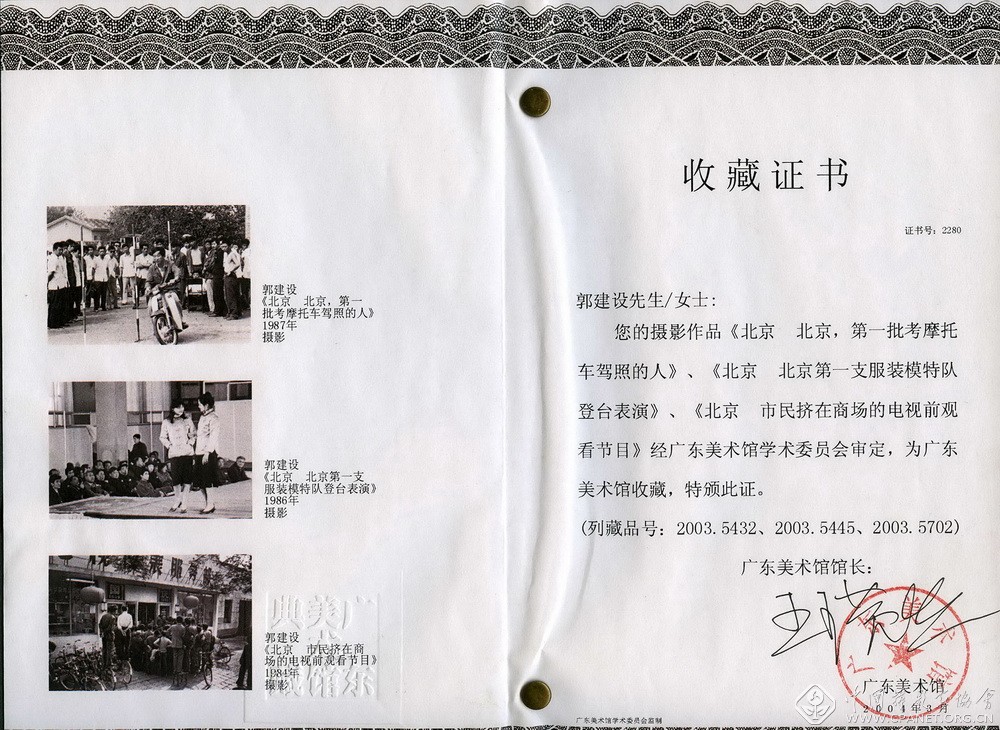 郭建设
《北京　北京，第一
批考摩托车驾照的人》
1987年
摄影
郭建设
《北京　北京第一支
服装模特队登台表演》
1986年
摄影
郭建设
《北京　市民挤在商
场的电视前观看节目》
1984年
摄影
收藏证书
证书号：2280
郭建设先生/女士：
您的摄影作品《北京　北京，第一批考摩托
车驾照的人》、《北京　北京第一支服装模特队
登台表演》、《北京　市民挤在商场的电视前观
看节目》经广东美术馆学术委员会审定，为广东
美术馆收藏，特颁此证。
(列藏品号：2003.5432、2003.5445、2003.5702)
广东美术馆馆长：
广东美术馆
2004年3月
广东美术馆学术委员会监制
中国摄影家协会
WWW.CPANET.ORG.CN